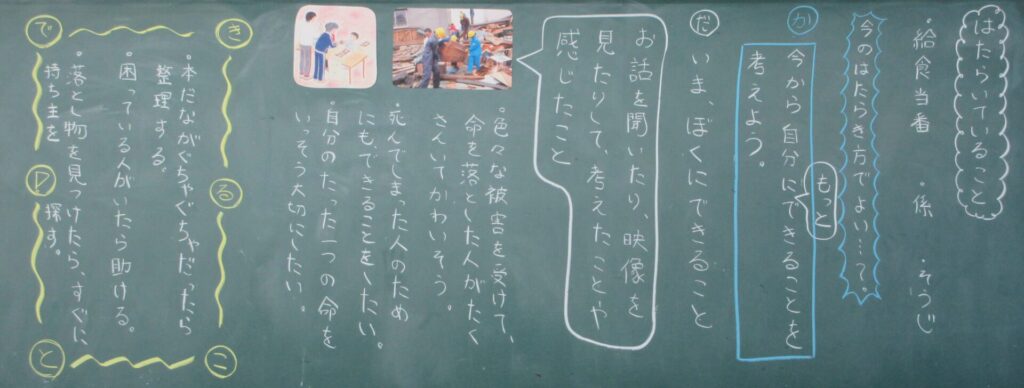 はたらいていること
・給食当番　・係　・そうじ
今のはたらき方でよい…？。
か
今から自分にできることを
もっと
考えよう。
だ
いま、ぼくにできること
お話を聞いたり、映像を
見たりして、考えたことや
感じたこと
・色々な被害を受けて、
命を落とした人がたく
さんいてかわいそう。
・死んでしまった人のため
にも、できることをしたい。
・自分のたった一つの命を
いっそう大切にしたい。
できること
・本だながぐちゃぐちゃだったら
整理する。
・困っている人がいたら助ける。
・落とし物を見つけたら、すぐに、
持ち主を探す。